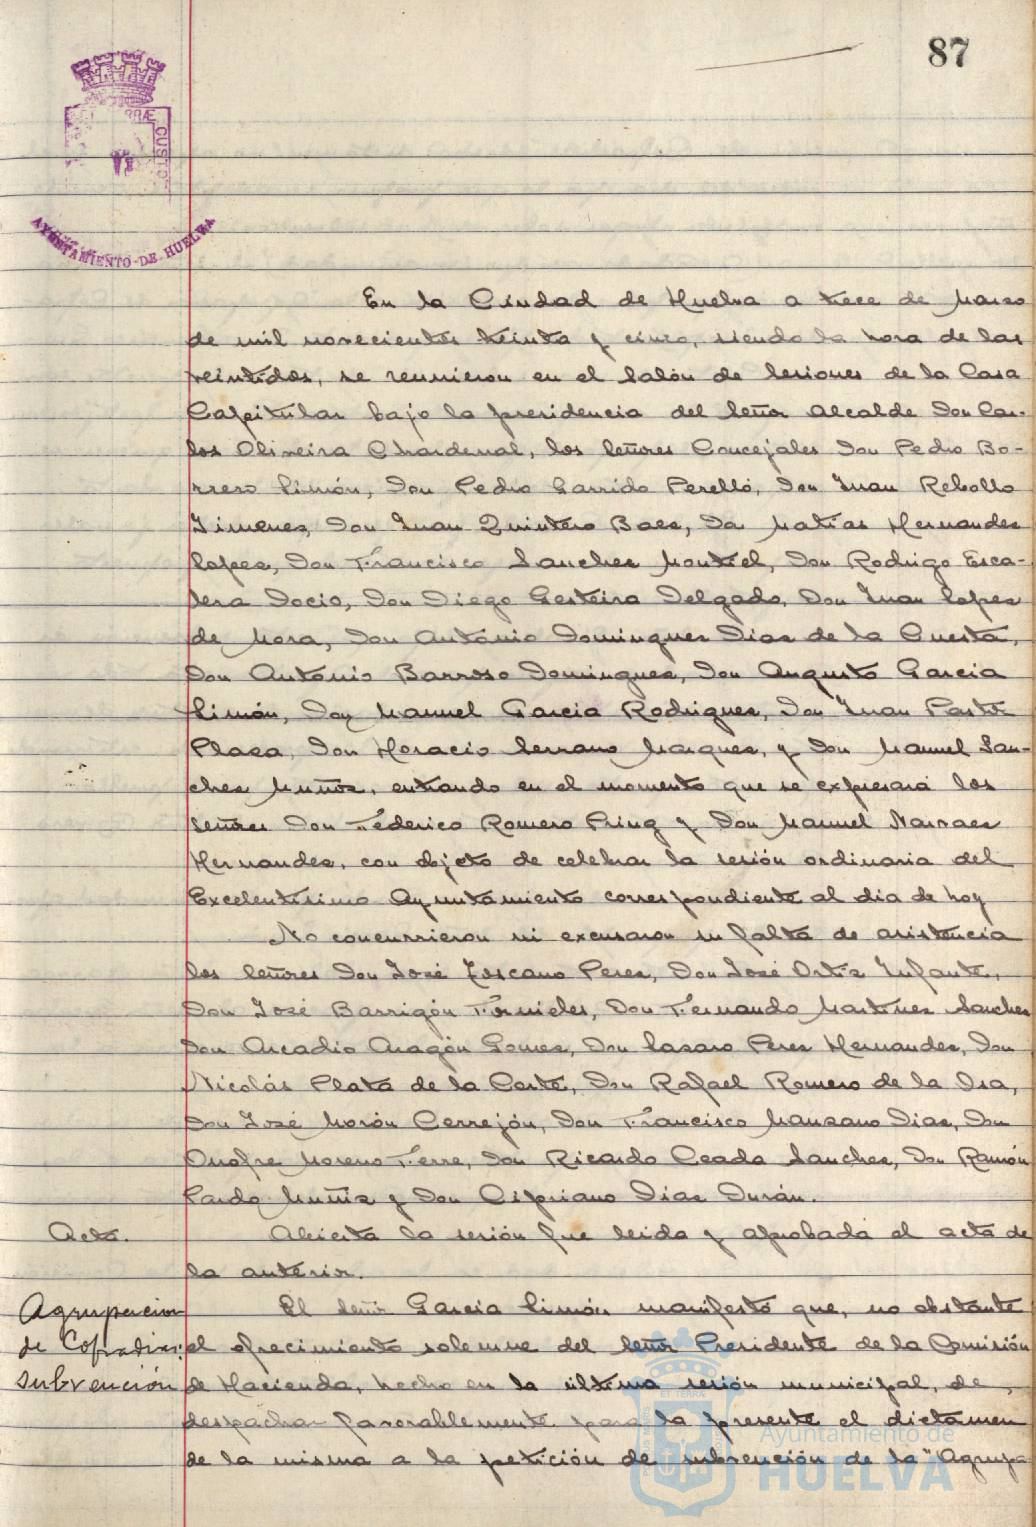 87
RRÆ CUSTO
AYUNTAMIENTO DE HUELVA
En la Ciudad de Huelva a trece de Marzo
de mil novecientos treinta y cinco, siendo la hora de las
veintidos, se reunieron en el Salón de Sesiones de la Casa
Capitular bajo la presidencia del Señor Alcalde Don Car-
los Oliveira Chardenal, los Señores Concejales Don Pedro Bo-
rrero Limón, Don Pedro Garrido Perelló, Don Juan Rebollo
Jimenez, Don Juan Quintero Baez, Don Matias Hernandez
Lopez, Don Francisco Sanchez Montiel, Don Rodrigo Esca-
sera Socio, Don Diego Gesteira Delgado, Don Juan Lopez
de Mora, Don Antonio Dominguez Diaz de la Cuesta,
Don Antonio Barroso Dominguez, Don Augusto Garcia
Limón, Don Manuel Garcia Rodriguez, Don Juan Pastor
Plaza, Don Horacio Serrano Marquez, y Don Manuel San-
chez Muñoz, entrando en el momento que se expresará los
Señores Don Federico Romero Pring y Don Manuel Narvaez
Hernandez, con objeto de celebrar la sesión ordinaria del
Excelentisimo Ayuntamiento correspondiente al dia de hoy
No concurrieron ni excusaron su falta de asistencia
los Señores Don José Toscano Perez, Don José Ortiz Infante,
Don José Barrigón Fornieles, Don Fernando Martinez Sanchez
Don Arcadio Aragón Gomez, Don Lazaro Perez Hernandez, Don
Nicolás Plata de la Corte, Don Rafael Romero de la Osa,
Don José Morón Cerrejón, Don Francisco Manzano Diaz, Don
Onofre Moreno Ferre, Don Ricardo Ceada Sanchez, Don Ramón
Pardo Muñiz y Don Cipriano Diaz Durán.
Acta. Abierta la sesión fue leida y aprobada el acta de
la anterior.
Agrupación El Señor Garcia Limón manifestó que, no obstante
de Cofradias: el ofrecimiento solemne del Señor Presidente de la Comisión
subvención de Hacienda, hecho en la última sesión municipal, de
despachar favorablemente para la presente el dictamen
de la misma a la petición de subvención de la "Agrupa
Ayuntamiento de
HUELVA